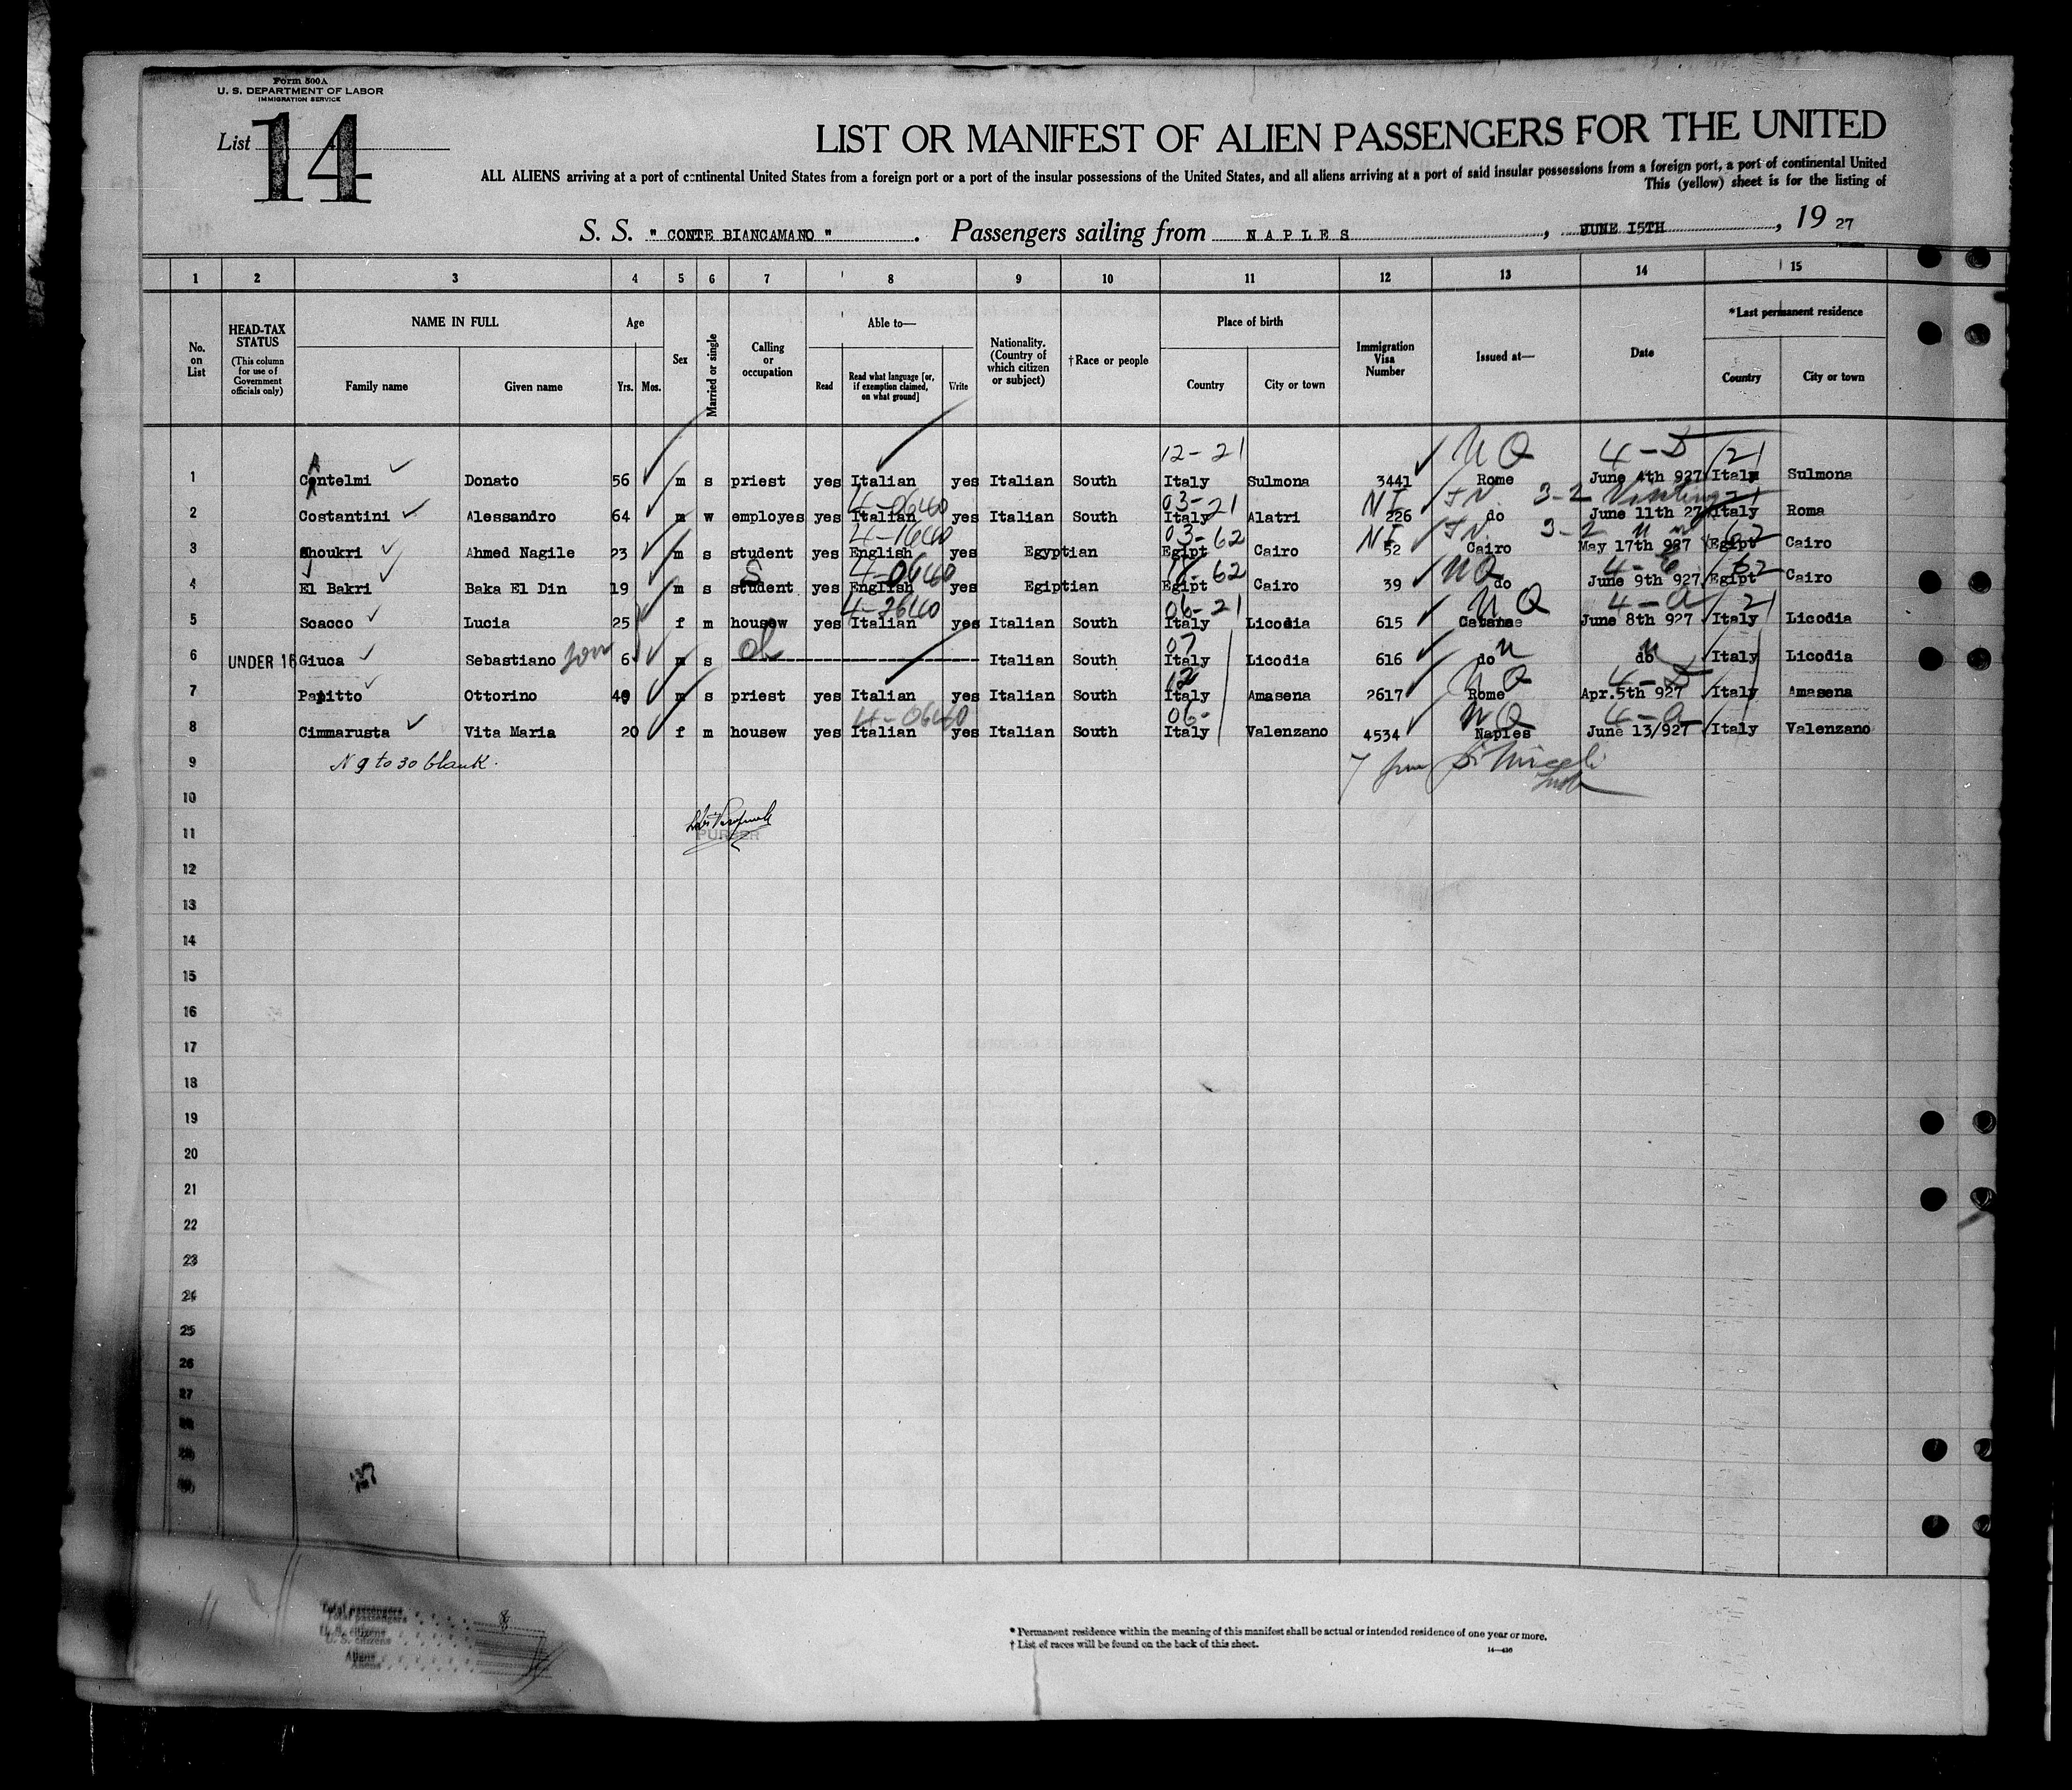 Form 500A
U. S. DEPARTMENT OF LABOR
IMMIGRATION SERVICE
List 14
LIST OR MANIFEST OF ALIEN PASSENGERS FOR THE UNITED
ALL ALIENS arriving at a port of continental United States from a foreign port or a port of the insular possessions of the United States, and all aliens arriving at a port of said insular possessions from a foreign port, a port of continental United
This (yellow) sheet is for the listing of
S. S. " CONTE BIANCAMANO " . Passengers sailing from NAPLES , JUNE 15TH , 19 27
1 2 3 4 5 6 7 8 9 10 11 12 13 14 15
No. on List
HEAD-TAX STATUS (This column for use of Government officials only)
NAME IN FULL
Family name Given name
Age
Yrs. Mos.
Sex
Married or single
Calling or occupation
Able to—
Read Read what language [or, if exemption claimed, on what ground] Write
Nationality. (Country of which citizen or subject)
† Race or people
Place of birth
Country City or town
Immigration Visa Number
Issued at—
Date
*Last permanent residence
Country City or town
12-21 NQ 4-D 21
1 Cantelmi Donato 56 m s priest yes Italian yes Italian South Italy Sulmona 3441 Rome June 4th 927 Italy Sulmona
4-0640 03-21 NI 3-2 Visiting 21
2 Costantini Alessandro 64 m w employes yes Italian yes Italian South Italy Alatri 226 do June 11th 27 Italy Roma
4-1640 03-62 NI 3-2 62
3 Shoukri Ahmed Nagile 23 m s student yes English yes Egyptian Egipt Cairo 52 Cairo May 17th 927 Egipt Cairo
S 4-0640 62 NQ 62
4 El Bakri Baka El Din 19 m s student yes English yes Egiptian Egipt Cairo 39 do June 9th 927 Egipt Cairo
4-2640 06-21 NQ 4-a 21
5 Scacco Lucia 25 f m housew yes Italian yes Italian South Italy Licodia 615 June 8th 927 Italy Licodia
07 n n
6 UNDER 16 Giuca Sebastiano son 6 m s ch Italian South Italy Licodia 616 do do Italy Licodia
12 NQ 4-D
7 Papitto Ottorino 40 m s priest yes Italian yes Italian South Italy Amasena 2617 Rome Apr.5th 927 Italy Amasena
4-0640 06- NQ 4-a
8 Cimmarusta Vita Maria 20 f m housew yes Italian yes Italian South Italy Valenzano 4534 Naples June 13/927 Italy Valenzano
9 N 9 to 30 blank.
10
11 PURSER
12
13
14
15
16
17
18
19
20
21
22
23
24
25
26
27
28
29
30
Total passengers 8
U. S. citizens
Aliens
* Permanent residence within the meaning of this manifest shall be actual or intended residence of one year or more.
† List of races will be found on the back of this sheet.
14—430